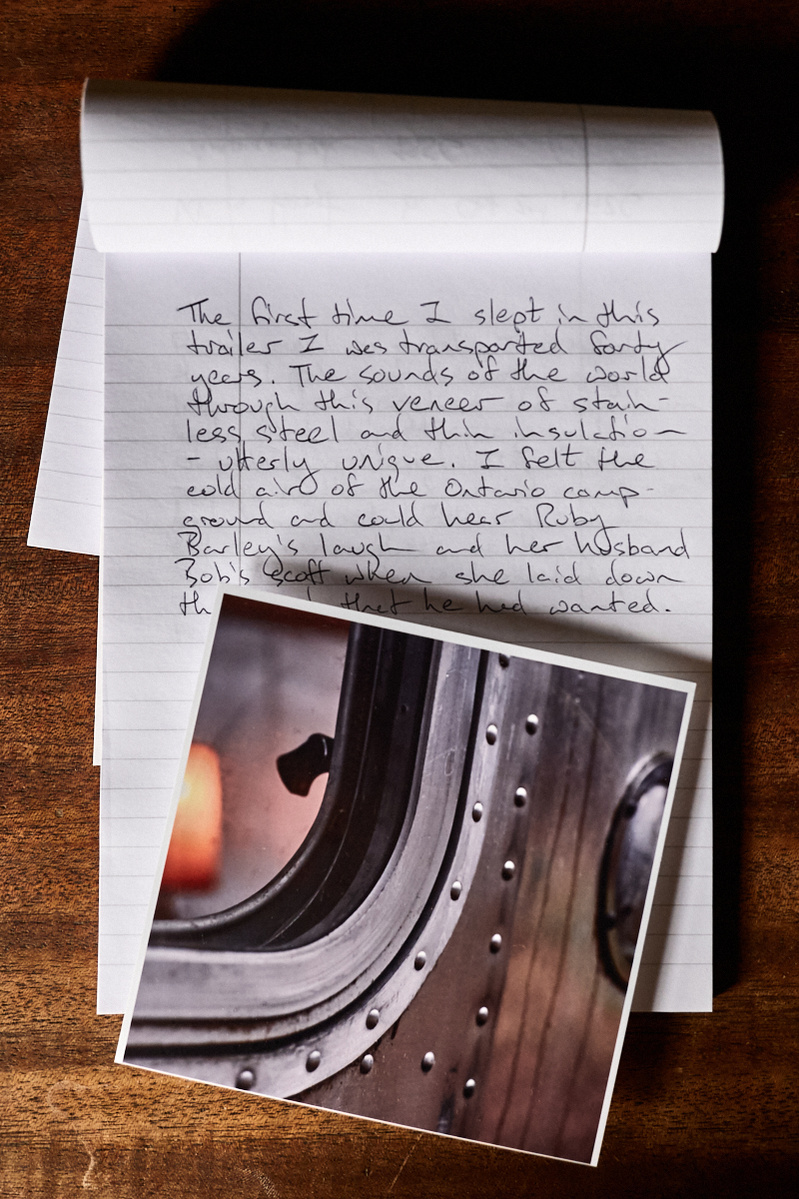 The first time I slept in this
trailer I was transported forty
years. The sounds of the world
through this veneer of stain-
less steel and thin insulation
- utterly unique. I felt the
cold air of the Ontario camp-
ground and could hear Ruby
Barley's laugh and her husband
Bob's scoff when she laid down
that he had wanted.